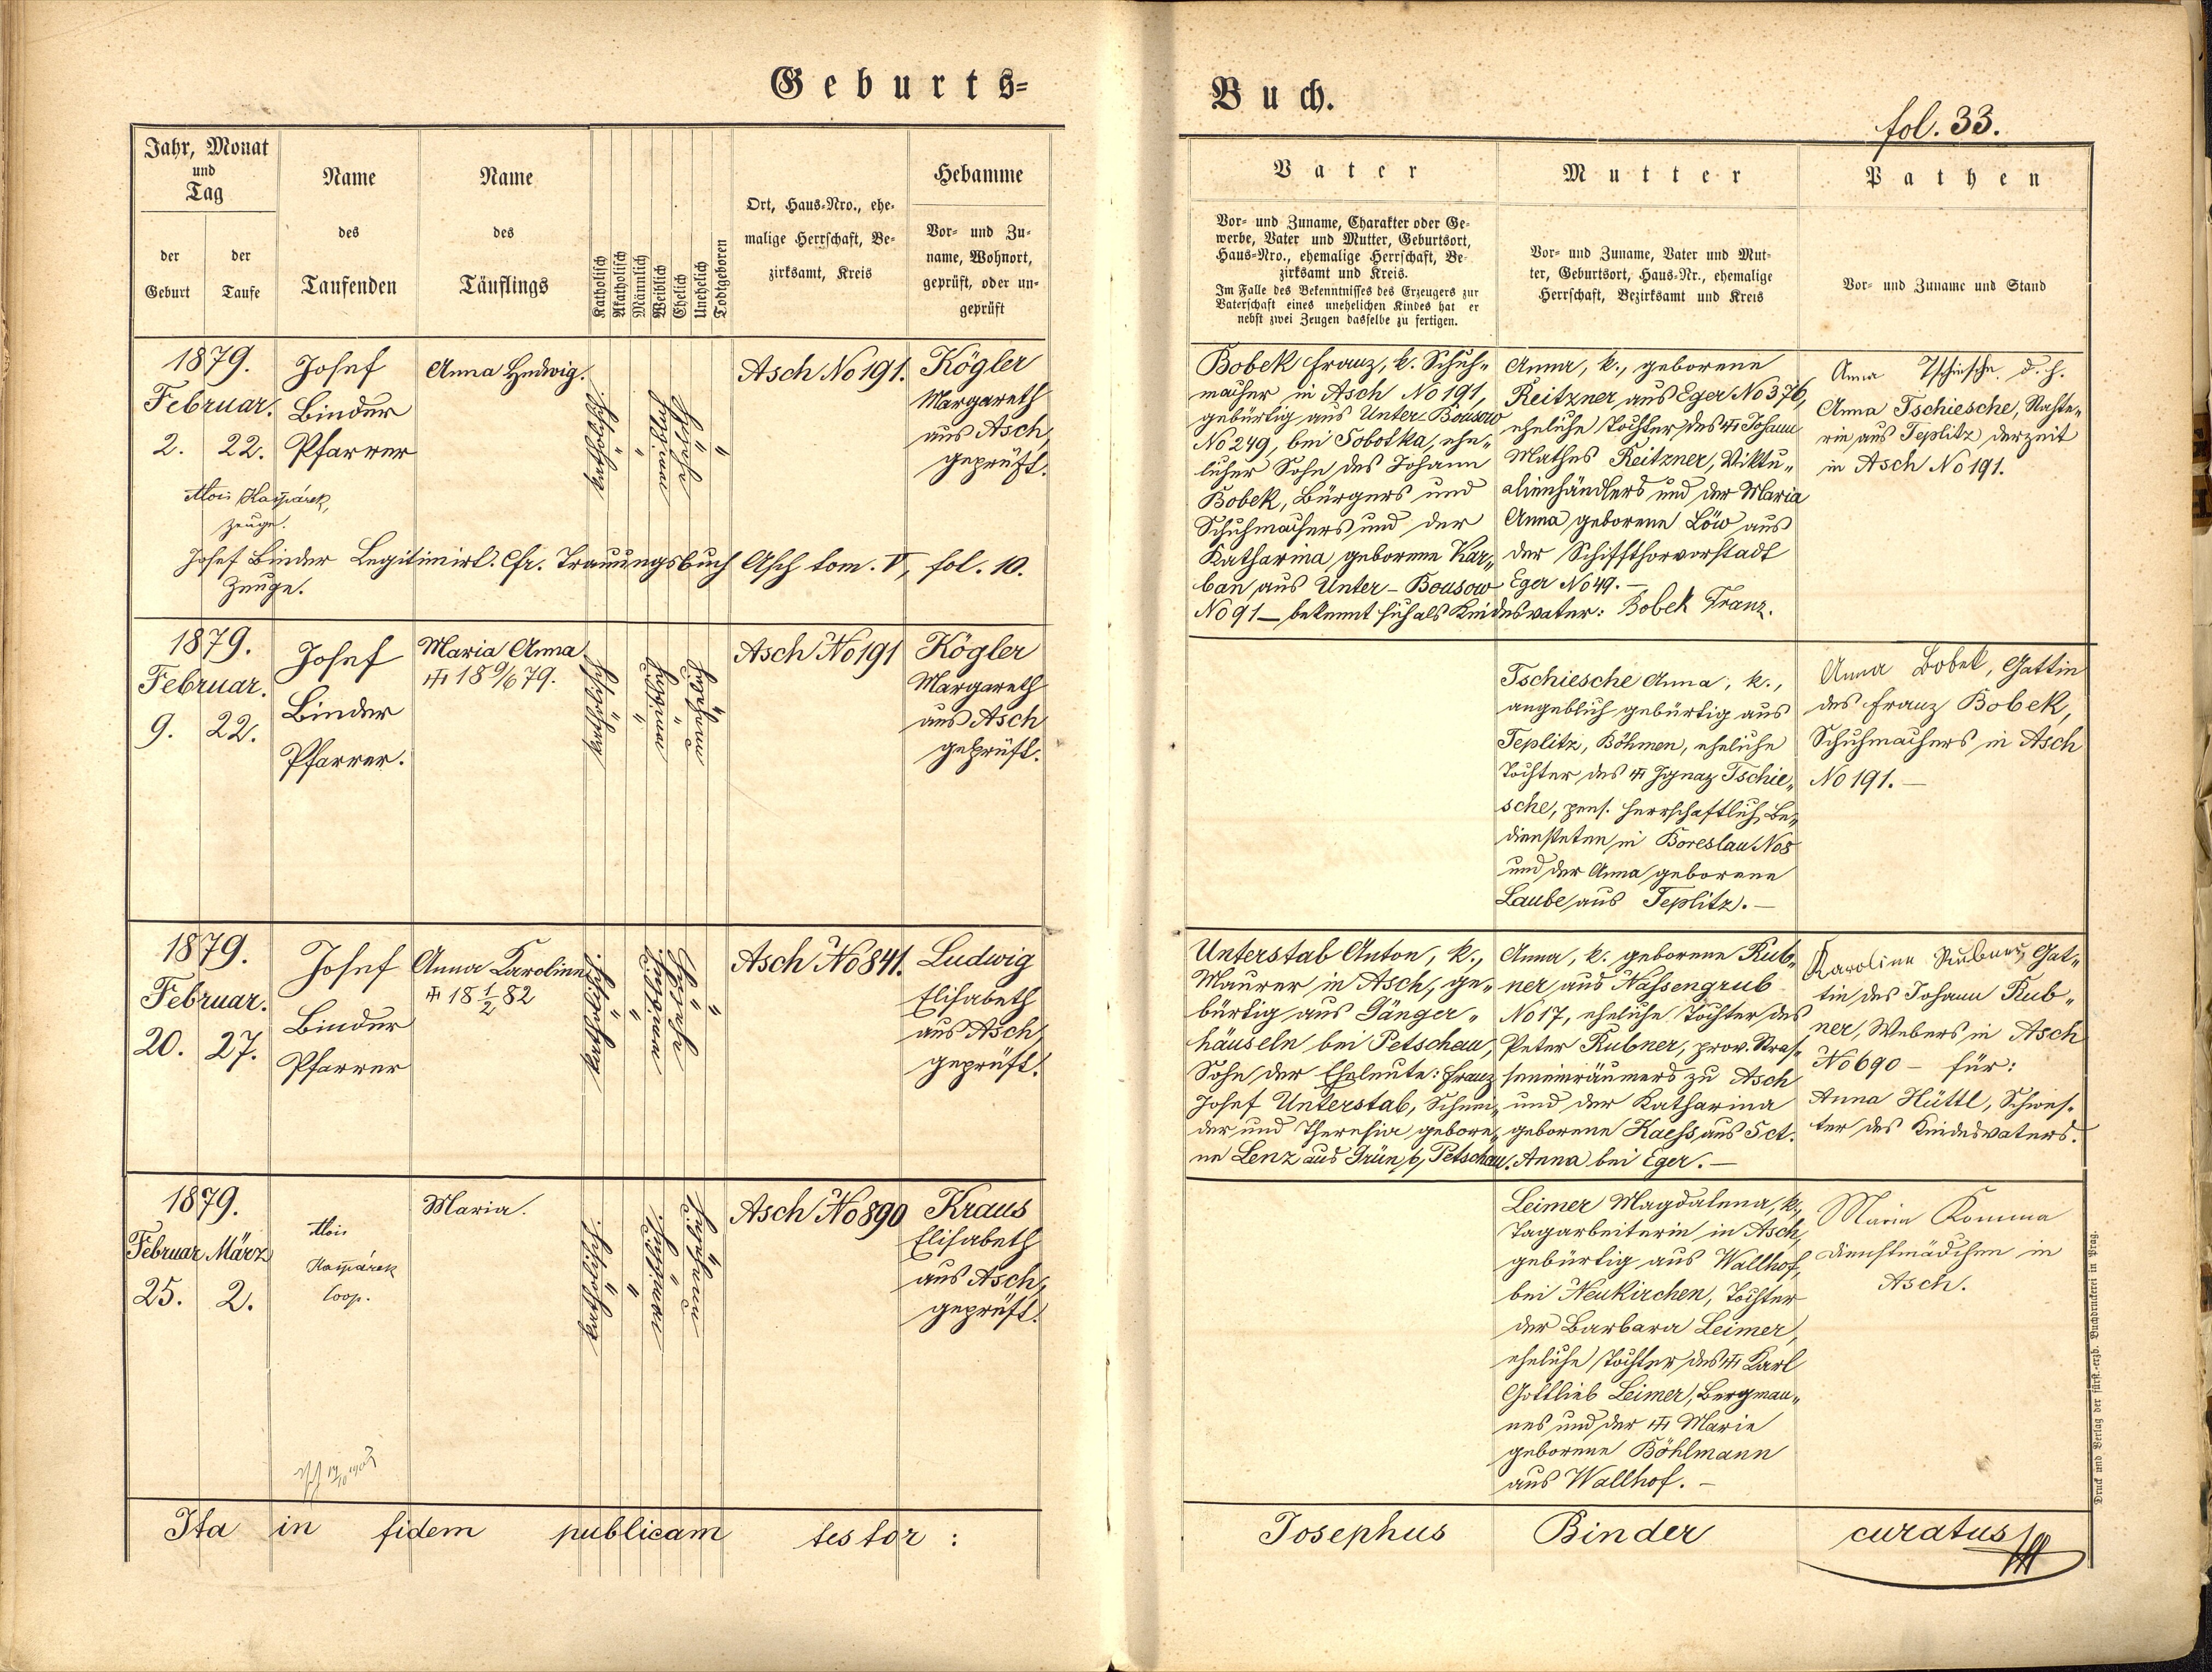 Geburts-
Buch.
fol. 33.
Jahr, Monat
und
Tag
der
Geburt
der
Taufe
Name
des
Taufenden
Name
des
Täuflings
Katholisch
Akatholisch
Männlich
Weiblich
Ehelich
Unehelich
Todtgeboren
Ort, Haus-Nro., ehe-
malige Herrschaft, Be-
zirksamt, Kreis
Hebamme
Vor- und Zu-
name, Wohnort,
geprüft, oder un-
geprüft
Vater
Vor- und Zuname, Charakter oder Ge-
werbe, Vater und Mutter, Geburtsort,
Haus-Nro., ehemalige Herrschaft, Be-
zirksamt und Kreis.
Im Falle des Bekenntnisses des Erzeugers zur
Vaterschaft eines unehelichen Kindes hat er
nebst zwei Zeugen dasselbe zu fertigen.
Mutter
Vor- und Zuname, Vater und Mut-
ter, Geburtsort, Haus-Nr., ehemalige
Herrschaft, Bezirksamt und Kreis
Pathen
Vor- und Zuname und Stand
1879.
Februar.
2. 22.
Josef
Binder
Pfarrer
Anna Hedwig.
katholisch
"
"
Asch No 191.
Kögler
Margareth
aus Asch,
geprüft.
Alois Kašpárek,
Zeuge.
Josef Binder Legitimirt. Cfr. Trauungsbuch Asch tom. V, fol. 10.
Zeuge.
Bobek Franz, k. Schuh-
macher in Asch No 191,
gebürtig aus Unter-Bousow
No 249, bei Sobotka, ehe-
licher Sohn des Johann
Bobek, Bürgers und
Schuhmachers und der
Katharina geborene Kar-
ban aus Unter-Bousow
No 91 – bekennt sich als Kindesvater: Bobek Franz.
Anna, k., geborene
Reitzner, aus Eger No 376,
eheliche Tochter des Johann
Mathes Reitzner, Viktu-
alienhändlers und der Maria
Anna geborene Löw aus
der Schiffthorvorstadt
Eger No 49.–
Anna Tschische d. h.
Anna Tschiesche, Nähte-
rin aus Teplitz derzeit
in Asch No 191.
1879.
Februar.
9. 22.
Josef
Binder
Pfarrer.
Maria Anna
18 9/6 79.
katholisch
"
"
Asch No 191
Kögler
Margareth
aus Asch
geprüft.
Tschiesche Anna, k.,
angeblich gebürtig aus
Teplitz, Böhmen, eheliche
Tochter des Ignaz Tschie-
sche, pens. herrschaftlich. Be-
diensteten in Boreslau No 8
und der Anna geborene
Laube aus Teplitz.–
Anna Bobek, Gattin
des Franz Bobek,
Schuhmachers in Asch
No 191.–
1879.
Februar.
20. 27.
Josef
Binder
Pfarrer
Anna Karoline
18 1/2 82
katholisch
"
"
Asch No 841.
Ludwig
Elisabeth
aus Asch,
geprüft.
Unterstab Anton, k.,
Maurer in Asch, ge-
bürtig aus Gänger-
häuseln bei Petschau,
Sohn der Eheleute: Franz
Josef Unterstab, Schnei-
der und Theresia gebore-
ne Lenz aus Grün, b, Petschau.
Anna, k. geborene Rub-
ner aus Nassengrub
No 17, eheliche Tochter des
Peter Rubner, prov. Stras-
seneinräumers zu Asch
und der Katharina
geborene Kaess aus Sct.
Anna bei Eger.–
Karoline Rubner, Gat-
tin des Johann Rub-
ner, Webers in Asch
No 690 – für:
Anna Hüttl, Schwes-
ter des Kindesvaters.
1879.
Februar März
25. 2.
Alois
Kašpárek
Coop.
Maria.
katholisch
"
"
Asch No 890
Kraus
Elisabeth
aus Asch,
geprüft.
Leimer Magdalena, k.,
Tagarbeiterin in Asch,
gebürtig aus Wallhof,
bei Neukirchen, Tochter
der Barbara Leimer,
eheliche Tochter des Karl
Gottlieb Leimer, Bergman-
nes und der Marie
geborene Böhlmann
aus Wallhof.–
Maria Komma
Dienstmädchen in
Asch.
Ita in fidem publicam testor:
Josephus Binder curatus
Druck und Verlag der fürst.-erzb. Buchdruckerei in Prag.